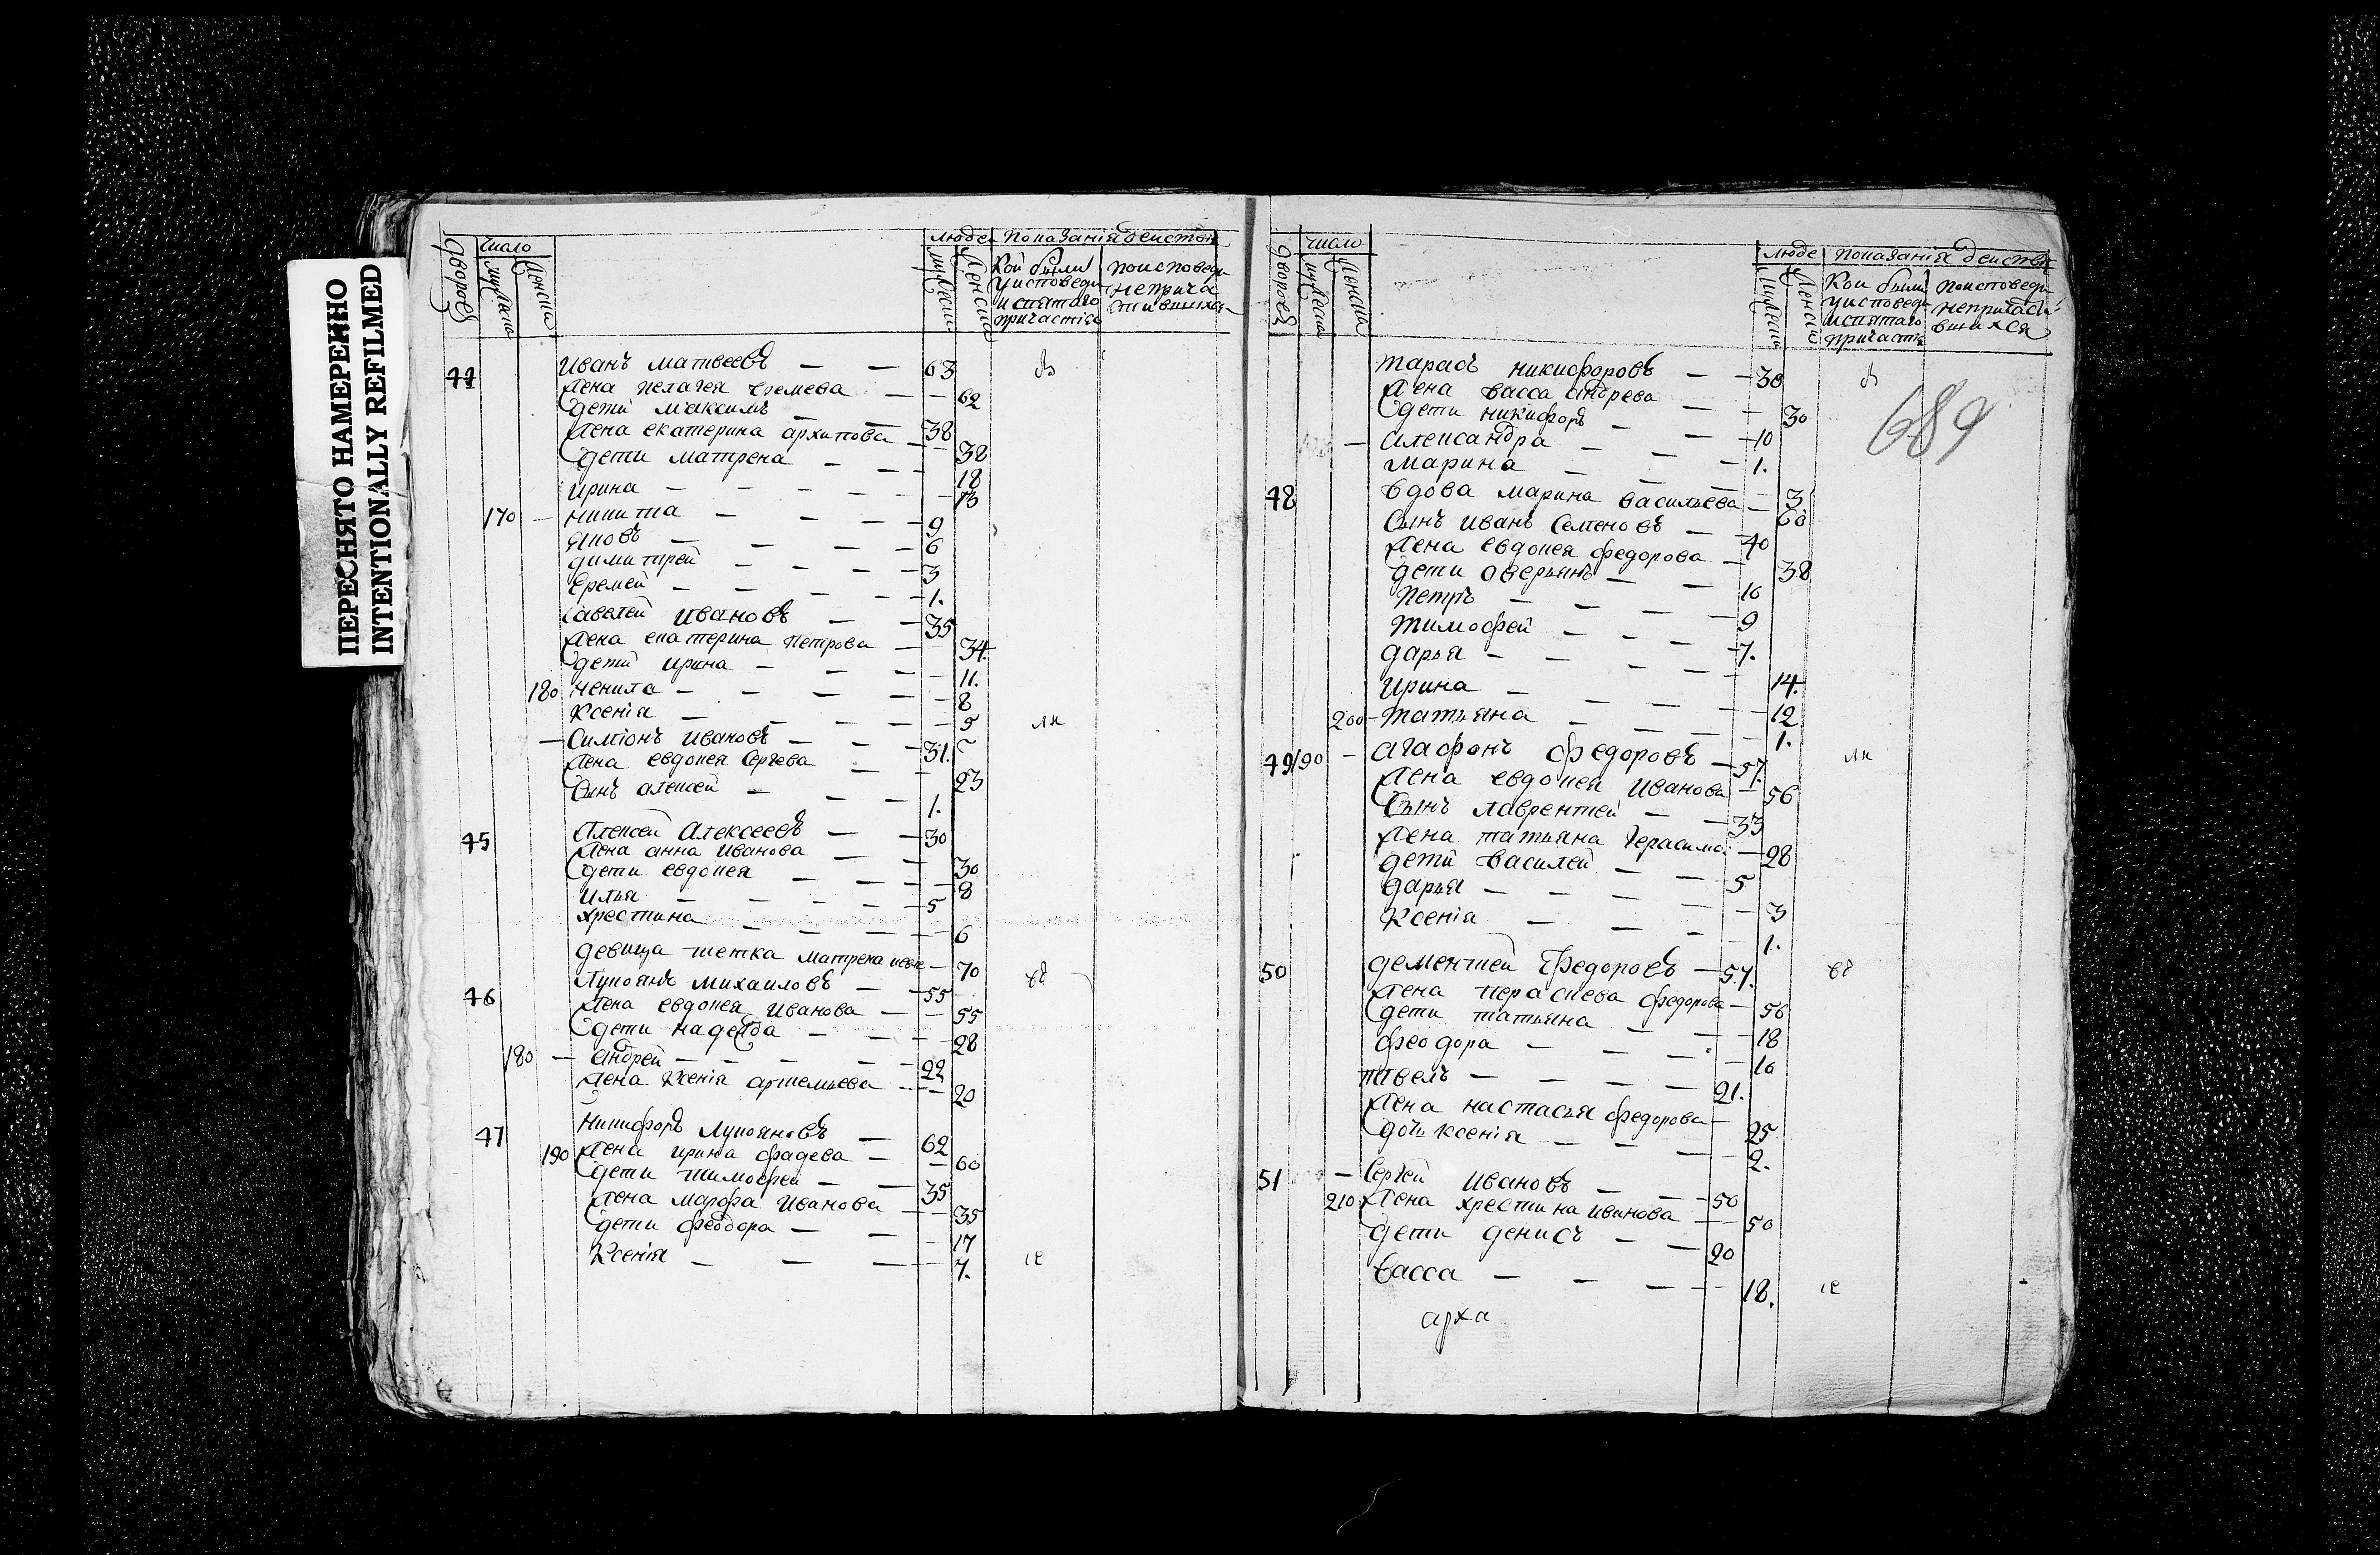 ПЕРЕСНЯТО НАМЕРЕННО
INTENTIONALLY REFILMED
дворовъ
число
мужеска
женска
люде
мужеска
женска
показанія действ
кои были
у исповеди
и святаго
причастія
по исповеди
неприча
стившихся
44 Иванъ матвеевъ — — 63
жена пелагея еремева — — 62
дети максимъ — — 38
жена екатерина архипова — 38
дети матрена — — 18
ирина — — — 13
170 — никита — — — 9
яковъ — — — 6
димитрей — — — 3
Еремей — — — 1.
савелей ивановъ — — 35
жена екатерина петрова — 34.
дети ирина — — — 11.
180 ненила — — — 8
Ксенія — — — 5
— Симіонъ ивановъ — — 31.
жена евдокея Сергева — — 23
сынъ алексей — — 1.
45 Алексей Алексеевъ — — 30
жена анна иванова — — 30
дети евдокея — — — 8
илья — — — 5
хрестина — — — 6
девица тетка матрена — 70
46 Лукоянъ михаиловъ — — 55
жена евдокея иванова — — 55
дети надежда — — — 28
180 — андрей — — — 22
жена Ксенія артемьева — — 20
47 Никифоръ Лукояновъ — 62
190 жена ирина фадева — — 60
дети тимофей — — 35
жена марфа иванова — — 35
дети феодора — — — 17
Ксенія — — — 7.
дворовъ
число
мужеска
женска
люде
мужеска
женска
показанія действ
кои были
у исповеди
и святаго
причаст
по исповеди
непричасти
вшихся
689
тарасъ никифоровъ — — 30
жена васса андрева — — 30
дети никифоръ — — 10
— александра — — 1.
марина — — — 3
48 вдова марина васильева — 60
сынъ иванъ Семеновъ — 40
жена евдокея федорова — 38
дети аверьянъ — — 10
петръ — — — 9
тимофей — — — 7.
дарья — — — 14.
ирина — — — 12
200 — татьяна — — — 1.
49 190 — агафонъ федоровъ — 57.
жена евдокея иванова — 56
сынъ лаврентей — — 33
жена татьяна герасима — 28
дети василей — — 5
дарья — — — 3
Ксенія — — — 1.
50 дементей федоровъ — 57.
жена параскева федорова — 56
дети татьяна — — 18
феодора — — — 10
павелъ — — — 21.
жена настасья федорова — 25
дочь ксенія — — — 2.
51 — Сергей ивановъ — — 50
210 жена хрестина иванова — 50
дети денисъ — — 20
васса — — — 18.
арха